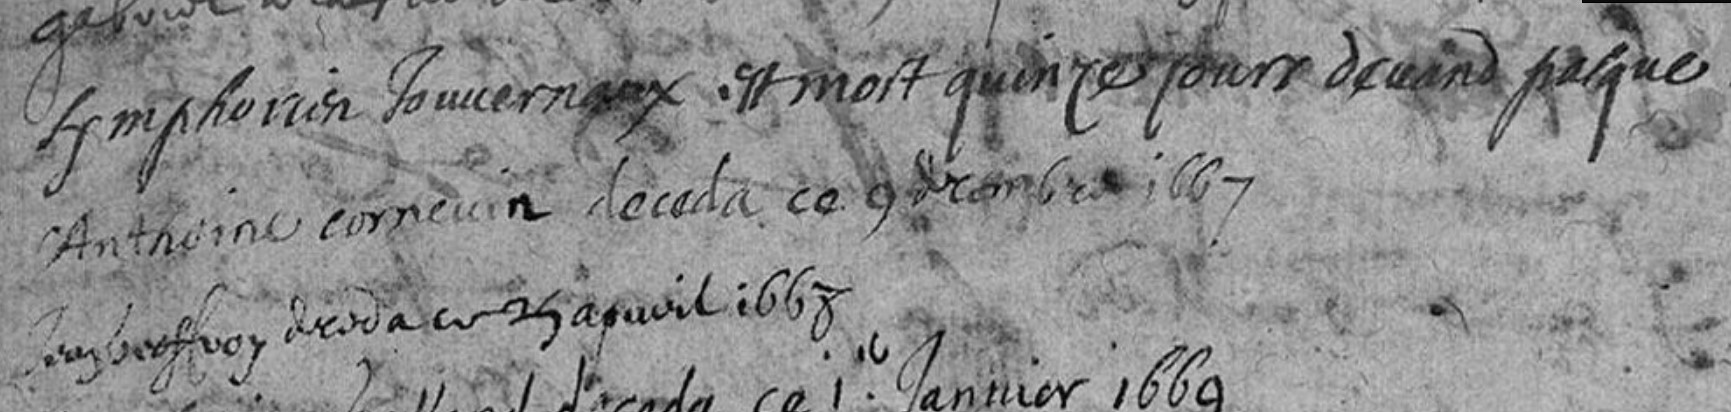 gabriel
Symphorien Jouvernaux est mort quinze jours devand pasque
Anthoine cornevin deceda ce 9 decembre 1667
deceda ce 25 apuril 1668
deceda ce 1 Januier 1669